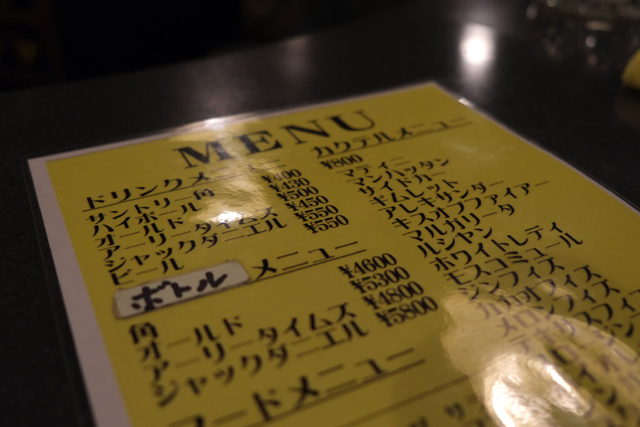 MENU
ドリンクメニュー
サントリー角 ¥400
ハイボール ¥430
オールド ¥500
アーリータイムス ¥450
ジャックダニエル ¥550
ビール ¥550
ボトル メニュー
角 ¥4600
オールド ¥5300
アーリータイムズ ¥4800
ジャックダニエル ¥5800
フードメニュー
カクテルメニュー
¥800
マティニー
マンハッタン
サイドカー
ギムレット
アレキサンダー
キスオブファイアー
マルガリータ
ルシヤン
ホワイトレディ
モスコミュール
ジンフィズ
カカオフィズ
メロンフィズ